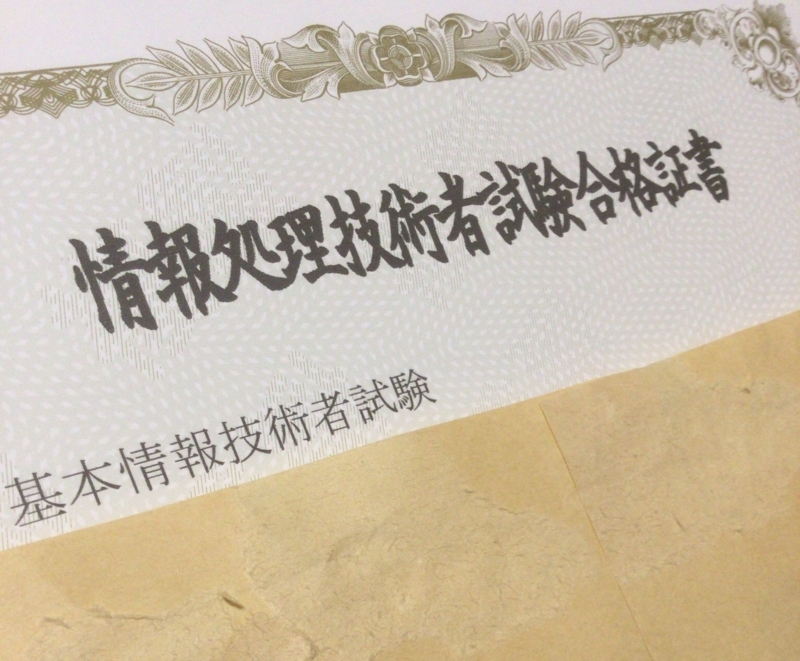 情報処理技術者試験合格証書
基本情報技術者試験